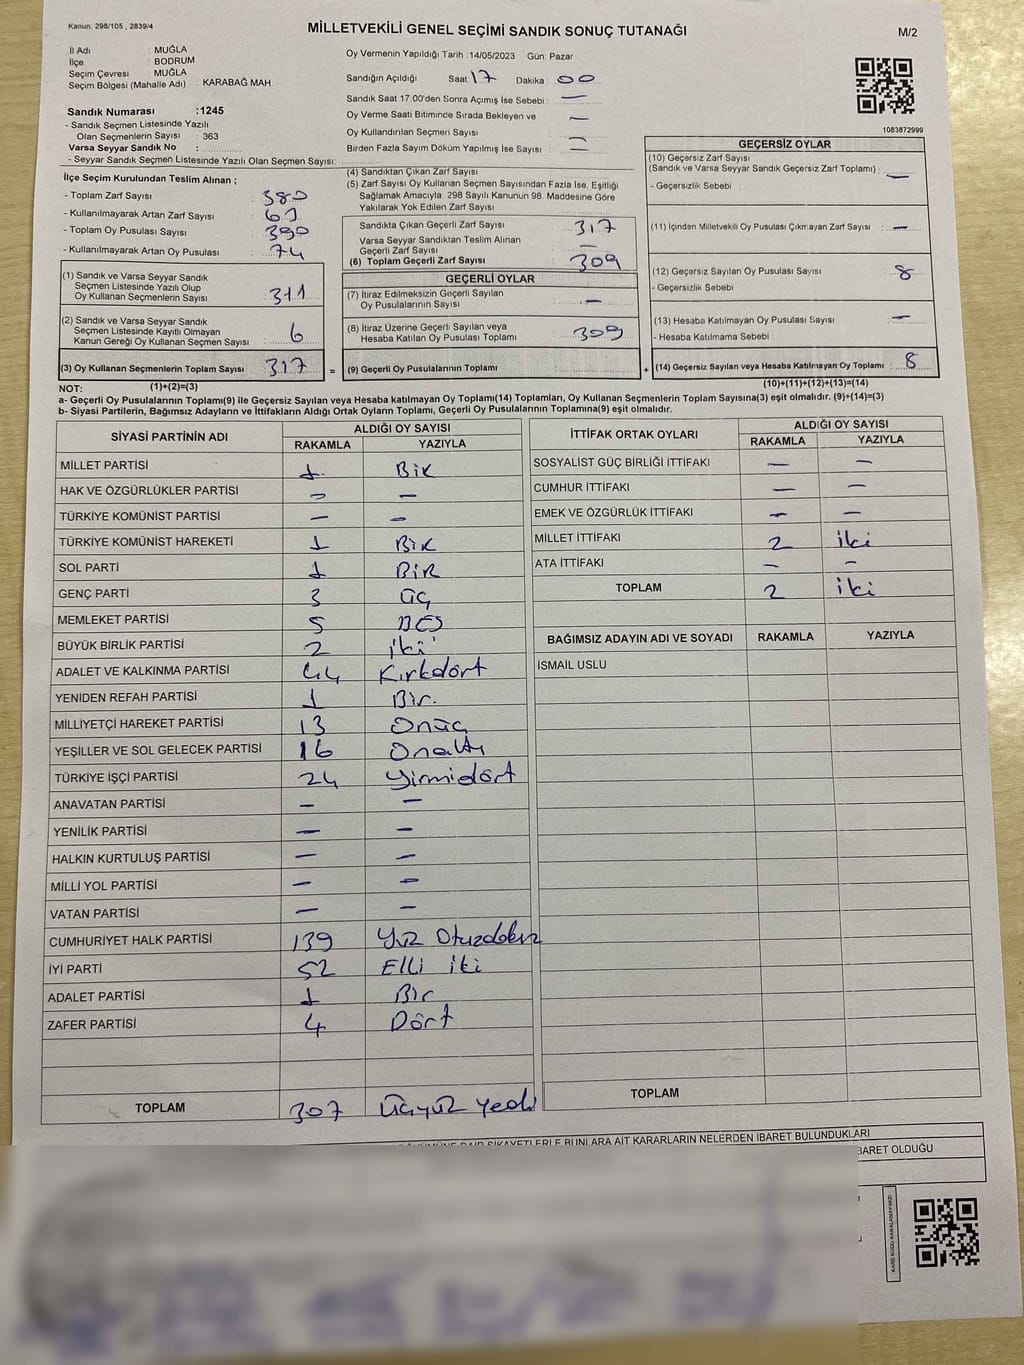 Kanun: 298/105 , 2839/4
MİLLETVEKİLİ GENEL SEÇİMİ SANDIK SONUÇ TUTANAĞI
M/2
İl Adı : MUĞLA
İlçe : BODRUM
Seçim Çevresi : MUĞLA
Seçim Bölgesi (Mahalle Adı) : KARABAĞ MAH
Sandık Numarası :1245
- Sandık Seçmen Listesinde Yazılı
Olan Seçmenlerin Sayısı : 363
Varsa Seyyar Sandık No :
- Seyyar Sandık Seçmen Listesinde Yazılı Olan Seçmen Sayısı:
Oy Vermenin Yapıldığı Tarih :14/05/2023 Gün: Pazar
Sandığın Açıldığı Saat 17 Dakika : 00
Sandık Saat 17:00'den Sonra Açımış İse Sebebi : —
Oy Verme Saati Bitiminde Sırada Bekleyen ve —
Oy Kullandırılan Seçmen Sayısı —
Birden Fazla Sayım Döküm Yapılmış İse Sayısı : —
1083872999
İlçe Seçim Kurulundan Teslim Alınan ;
- Toplam Zarf Sayısı : 380
- Kullanılmayarak Artan Zarf Sayısı : 63
- Toplam Oy Pusulası Sayısı : 390
- Kullanılmayarak Artan Oy Pusulası : 74
(1) Sandık ve Varsa Seyyar Sandık
Seçmen Listesinde Yazılı Olup
Oy Kullanan Seçmenlerin Sayısı : 311
(2) Sandık ve Varsa Seyyar Sandık
Seçmen Listesinde Kayıtlı Olmayan
Kanun Gereği Oy Kullanan Seçmen Sayısı : 6
(3) Oy Kullanan Seçmenlerin Toplam Sayısı : 317
(4) Sandıktan Çıkan Zarf Sayısı :
(5) Zarf Sayısı Oy Kullanan Seçmen Sayısından Fazla İse, Eşitliği
Sağlamak Amacıyla, 298 Sayılı Kanunun 98. Maddesine Göre
Yakılarak Yok Edilen Zarf Sayısı :
Sandıkta Çıkan Geçerli Zarf Sayısı : 317
Varsa Seyyar Sandıktan Teslim Alınan
Geçerli Zarf Sayısı : —
(6) Toplam Geçerli Zarf Sayısı : 309
GEÇERLİ OYLAR
(7) İtiraz Edilmeksizin Geçerli Sayılan
Oy Pusulalarının Sayısı : —
(8) İtiraz Üzerine Geçerli Sayılan veya
Hesaba Katılan Oy Pusulası Toplamı : 309
= (9) Geçerli Oy Pusulalarının Toplamı :
GEÇERSİZ OYLAR
(10) Geçersiz Zarf Sayısı
(Sandık ve Varsa Seyyar Sandık Geçersiz Zarf Toplamı) : —
- Geçersizlik Sebebi :
(11) İçinden Milletvekili Oy Pusulası Çıkmayan Zarf Sayısı : —
(12) Geçersiz Sayılan Oy Pusulası Sayısı : 8
- Geçersizlik Sebebi :
(13) Hesaba Katılmayan Oy Pusulası Sayısı : —
- Hesaba Katılmama Sebebi :
+ (14) Geçersiz Sayılan veya Hesaba Katılmayan Oy Toplamı : 8
NOT: (1)+(2)=(3) (10)+(11)+(12)+(13)=(14)
a- Geçerli Oy Pusulalarının Toplamı(9) ile Geçersiz Sayılan veya Hesaba katılmayan Oy Toplamı(14) Toplamları, Oy Kullanan Seçmenlerin Toplam Sayısına(3) eşit olmalıdır. (9)+(14)=(3)
b- Siyasi Partilerin, Bağımsız Adayların ve İttifakların Aldığı Ortak Oyların Toplamı, Geçerli Oy Pusulalarının Toplamına(9) eşit olmalıdır.
SİYASİ PARTİNİN ADI
ALDIĞI OY SAYISI
RAKAMLA YAZIYLA
MİLLET PARTİSİ 1 Bir
HAK VE ÖZGÜRLÜKLER PARTİSİ — —
TÜRKİYE KOMÜNİST PARTİSİ — —
TÜRKİYE KOMÜNİST HAREKETİ 1 Bir
SOL PARTİ 1 BİR
GENÇ PARTİ 3 üç
MEMLEKET PARTİSİ 5 BEŞ
BÜYÜK BİRLİK PARTİSİ 2 iki
ADALET VE KALKINMA PARTİSİ 44 Kırkdört
YENİDEN REFAH PARTİSİ 1 Bir.
MİLLİYETÇİ HAREKET PARTİSİ 13 Onüç
YEŞİLLER VE SOL GELECEK PARTİSİ 16 Onaltı
TÜRKİYE İŞÇİ PARTİSİ 24 Yirmidört
ANAVATAN PARTİSİ — —
YENİLİK PARTİSİ — —
HALKIN KURTULUŞ PARTİSİ — —
MİLLİ YOL PARTİSİ — —
VATAN PARTİSİ — —
CUMHURİYET HALK PARTİSİ 139 Yüz Otuzdokuz
İYİ PARTİ 52 Elli iki
ADALET PARTİSİ 1 Bir
ZAFER PARTİSİ 4 Dört
TOPLAM 307 Üçyüz Yedi
İTTİFAK ORTAK OYLARI
ALDIĞI OY SAYISI
RAKAMLA YAZIYLA
SOSYALİST GÜÇ BİRLİĞİ İTTİFAKI — —
CUMHUR İTTİFAKI — —
EMEK VE ÖZGÜRLÜK İTTİFAKI — —
MİLLET İTTİFAKI 2 iki
ATA İTTİFAKI — —
TOPLAM 2 iki
BAĞIMSIZ ADAYIN ADI VE SOYADI RAKAMLA YAZIYLA
İSMAİL USLU
TOPLAM
DAİR ŞİKAYETLERLE BUNLARA AİT KARARLARIN NELERDEN İBARET BULUNDUKLARI
BARET OLDUĞU
KARE KODU KARALAMAYINIZ!